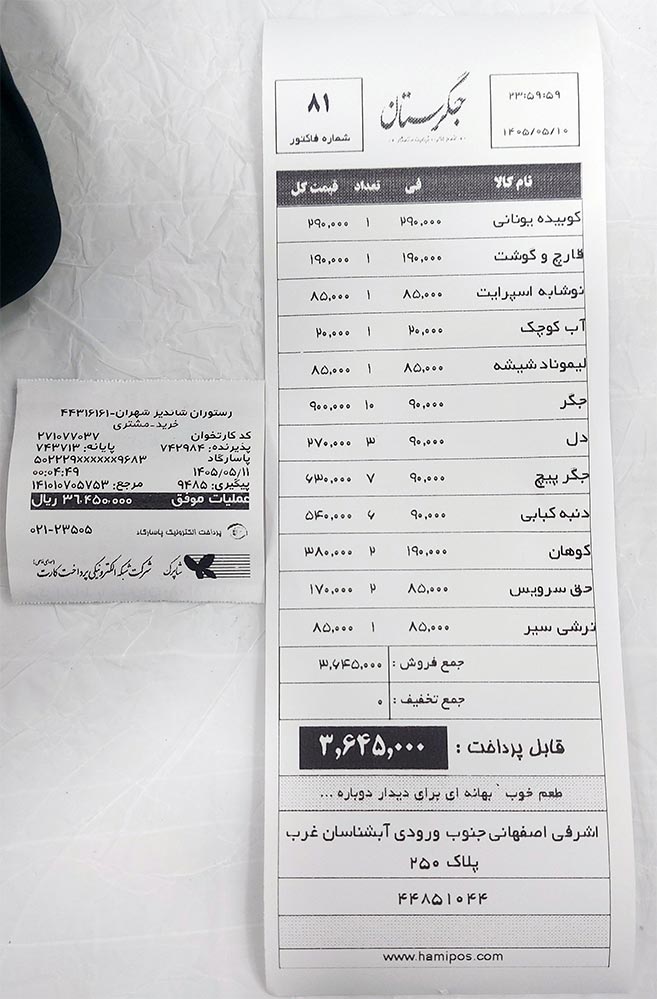 ۲۳:۵۹:۵۹
۱۴۰۵/۰۵/۱۰
جگرستان
۸۱
شماره فاکتور
نام کالا فی تعداد قیمت کل
کوبیده یونانی ۲۹۰,۰۰۰ ۱ ۲۹۰,۰۰۰
قارچ و گوشت ۱۹۰,۰۰۰ ۱ ۱۹۰,۰۰۰
نوشابه اسپرایت ۸۵,۰۰۰ ۱ ۸۵,۰۰۰
آب کوچک ۲۰,۰۰۰ ۱ ۲۰,۰۰۰
لیموناد شیشه ۸۵,۰۰۰ ۱ ۸۵,۰۰۰
جگر ۹۰,۰۰۰ ۱۰ ۹۰۰,۰۰۰
دل ۹۰,۰۰۰ ۳ ۲۷۰,۰۰۰
جگر پیچ ۹۰,۰۰۰ ۷ ۶۳۰,۰۰۰
دنبه کبابی ۹۰,۰۰۰ ۶ ۵۴۰,۰۰۰
کوهان ۱۹۰,۰۰۰ ۲ ۳۸۰,۰۰۰
حق سرویس ۸۵,۰۰۰ ۲ ۱۷۰,۰۰۰
ترشی سیر ۸۵,۰۰۰ ۱ ۸۵,۰۰۰
جمع فروش : ۳,۶۴۵,۰۰۰
جمع تخفیف : ۰
قابل پرداخت : ۳,۶۴۵,۰۰۰
طعم خوب ` بهانه ای برای دیدار دوباره ...
اشرفی اصفهانی جنوب ورودی آبشناسان غرب
پلاک ۲۵۰
۴۴۸۵۱۰۴۴
www.hamipos.com
رستوران شاندیز شهران-۴۴۳۱۶۱۶۱
خرید-مشتری
کد کارتخوان ۲۷۱۰۷۷۰۳۷
پذیرنده: ۷۴۲۹۸۴ پایانه: ۷۴۳۷۱۳
پاسارگاد ۵۰۲۲۲۹xxxxxx۹۶۸۳
۱۴۰۵/۰۵/۱۱ ۰۰:۰۴:۴۹
پیگیری: ۹۴۸۵ مرجع: ۱۴۱۰۱۰۷۰۵۷۵۳
عملیات موفق ۳۶,۴۵۰,۰۰۰ ریال
پرداخت الکترونیک پاسارگاد ۰۲۱-۲۳۵۰۵
شاپرک شرکت شبکه الکترونیکی پرداخت کارت (سهامی خاص)